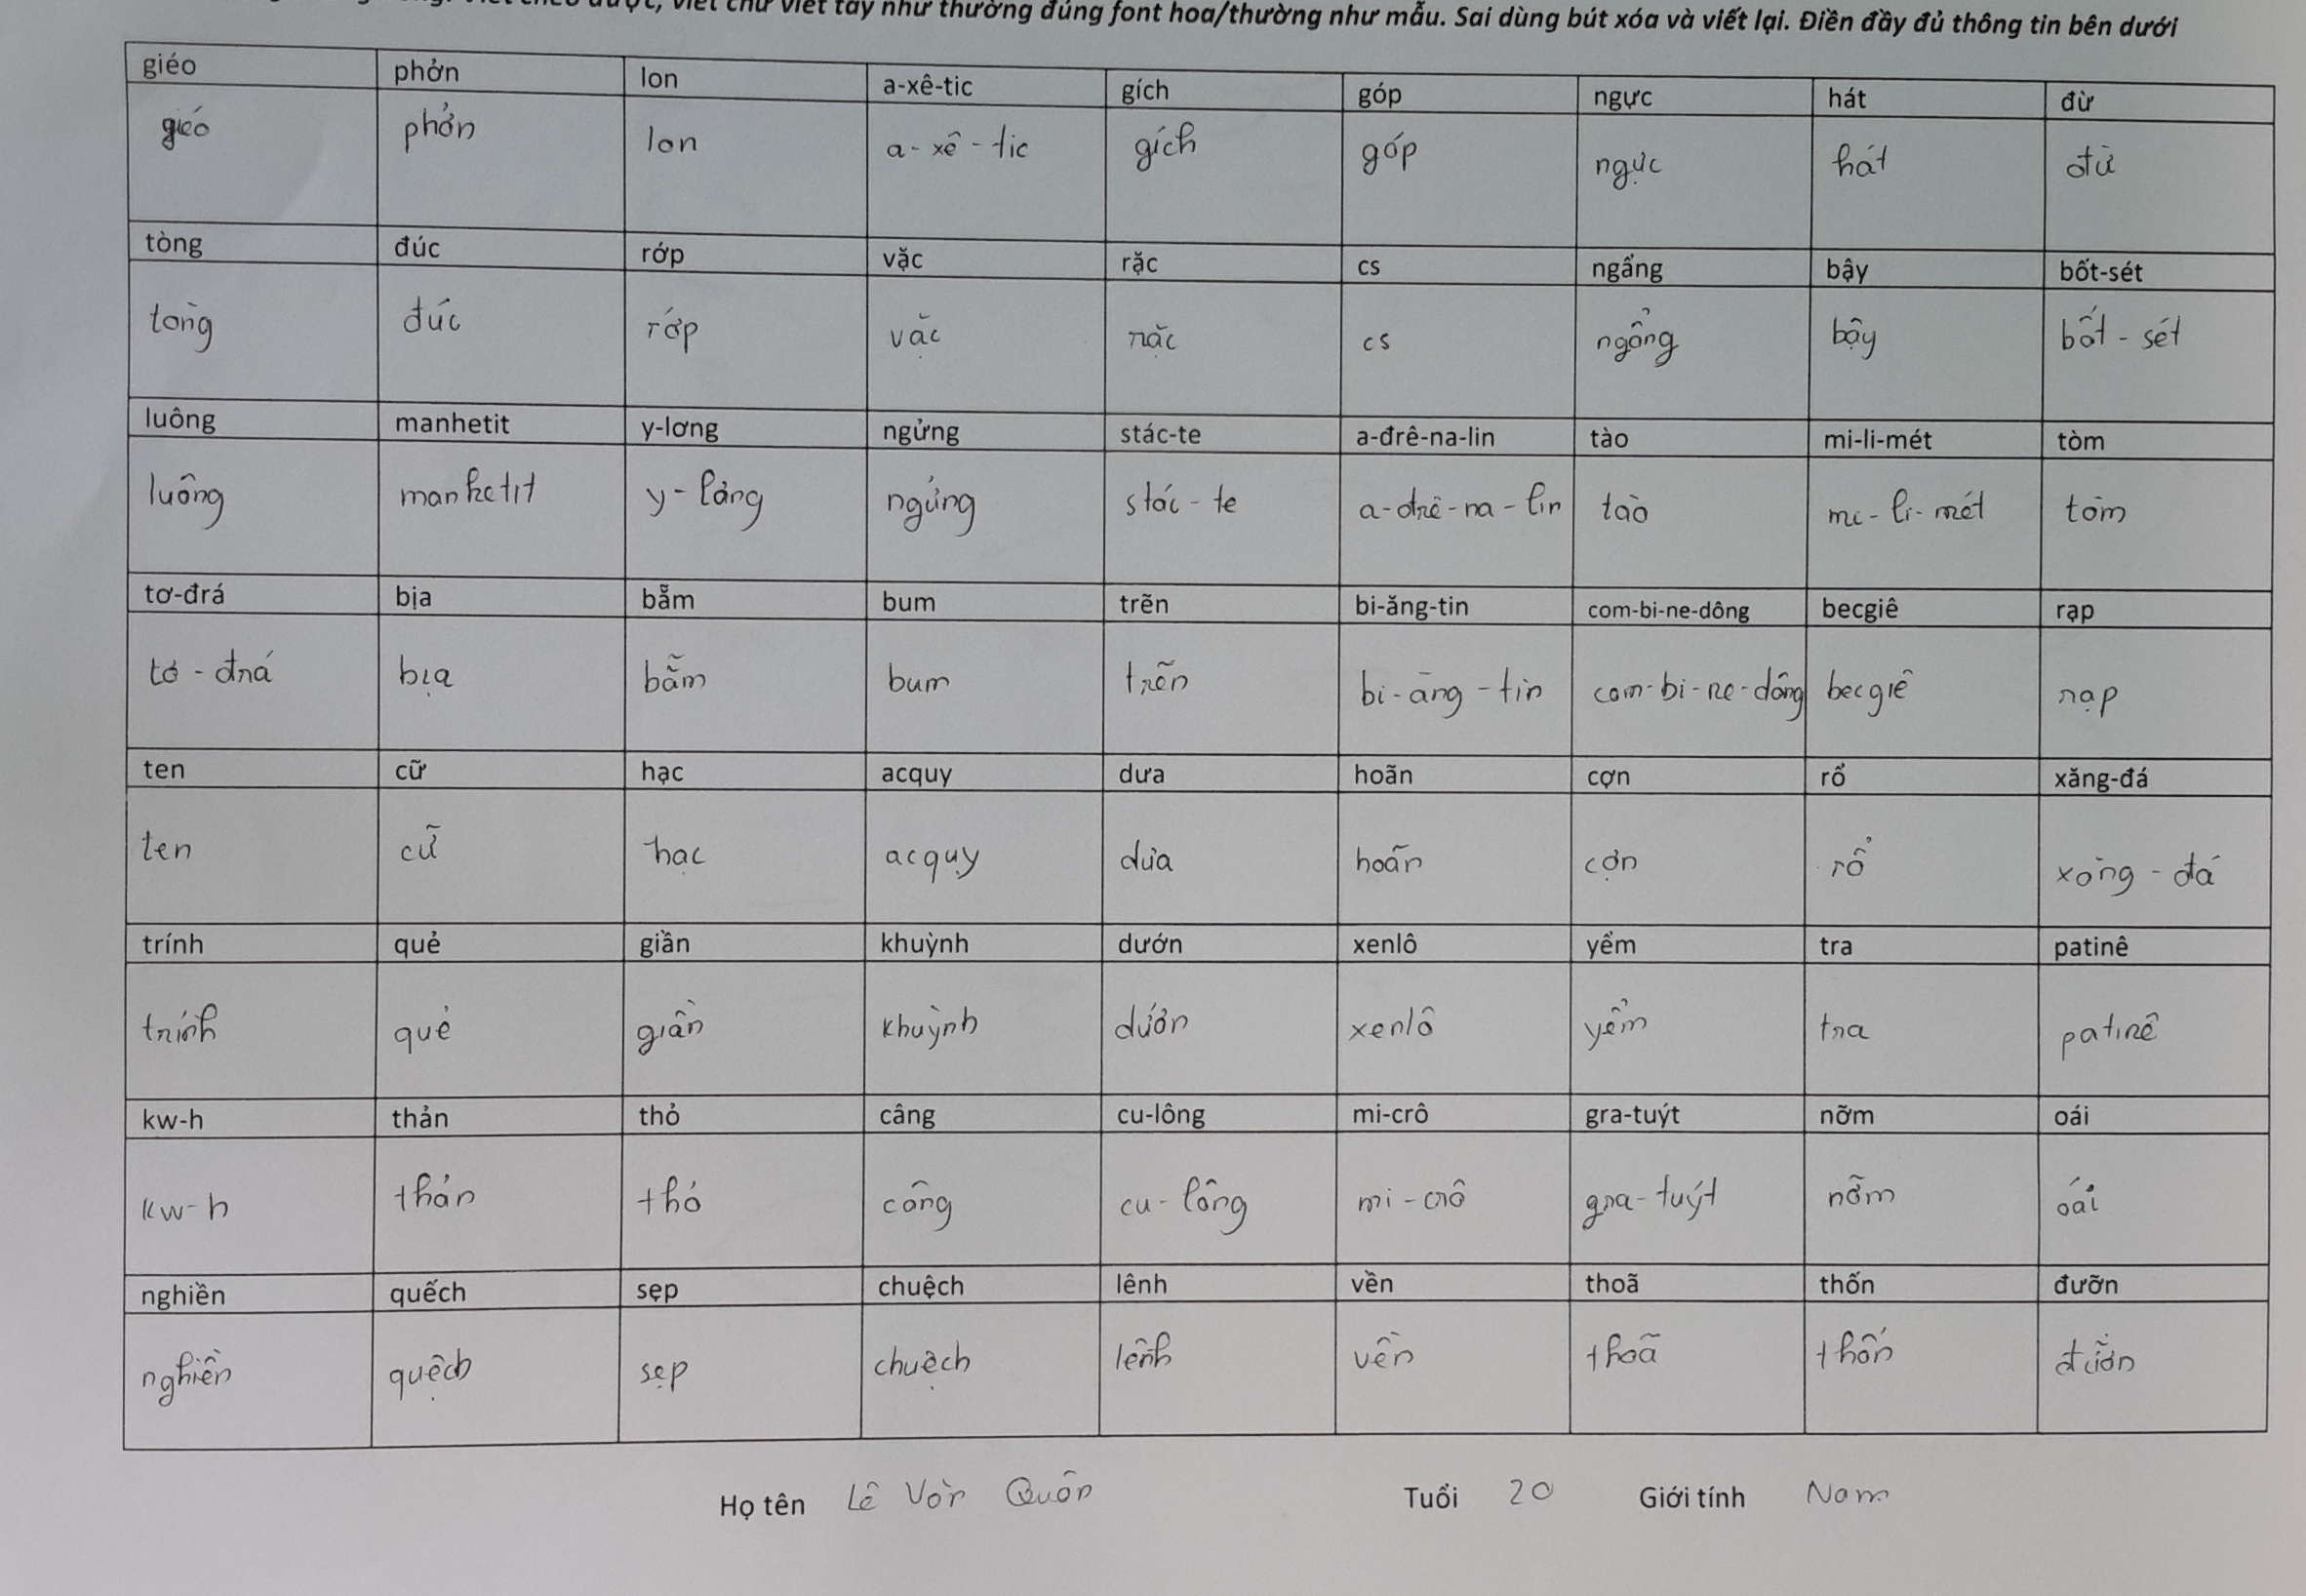 viết chữ viết tay như thường đúng font hoa/thường như mẫu. Sai dùng bút xóa và viết lại. Điền đầy đủ thông tin bên dưới
giéo phởn lon a-xê-tic gích góp ngực hát đừ
giéo phởn lon a-xê-tic gích góp ngực hát đừ
tòng đúc rớp vặc rặc cs ngẩng bậy bốt-sét
tòng đúc rớp vặc rặc cs ngẩng bậy bốt-sét
luông manhetit y-lơng ngửng stác-te a-đrê-na-lin tào mi-li-mét tòm
luông manhetit y-lơng ngửng stác-te a-đrê-na-lin tào mi-li-mét tòm
tơ-đrá bịa bẵm bum trẽn bi-ăng-tin com-bi-ne-dông becgiê rạp
tơ-đrá bịa bẵm bum trẽn bi-ăng-tin com-bi-ne-dông becgiê rạp
ten cữ hạc acquy dưa hoãn cợn rổ xăng-đá
ten cữ hạc acquy dưa hoãn cợn rổ xăng-đá
trính quẻ giần khuỳnh dướn xenlô yểm tra patinê
trính quẻ giần khuỳnh dướn xenlô yểm tra patinê
kw-h thản thỏ câng cu-lông mi-crô gra-tuýt nỡm oái
kw-h thản thỏ câng cu-lông mi-crô gra-tuýt nỡm oái
nghiền quếch sẹp chuệch lênh vền thoã thốn đưỡn
nghiền quệch sẹp chuệch lênh vền thoã thốn đưỡn
Họ tên Lê Văn Quân Tuổi 20 Giới tính Nam